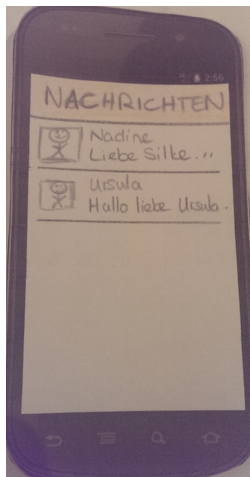 2:56
NACHRICHTEN
Nadine
Liebe Silke...
Ursula
Hallo liebe Ursula.